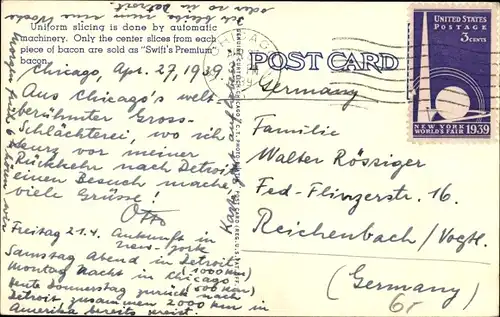 Uniform slicing is done by automatic
machinery. Only the center slices from each
piece of bacon are sold as "Swift's Premium"
bacon.
POST CARD
UNITED STATES
POSTAGE
3 CENTS
NEW YORK
WORLD'S FAIR 1939
Chicago, Apr. 27, 1939.
Aus Chicago's welt-
berühmter Gross-
Schlächterei, wo ich
kurz vor meiner
Rückkehr nach Detroit
einen Besuch mache
viele Grüsse!
Otto
Freitag 21.4. Ankunft in
New-York
Samstag Abend in Detroit
(1000 km)
Montag Nacht in Chicago
(500 km)
heute Donnerstag zurück nach
Detroit zusammen 2000 km in
Amerika bereits gereist.
Germany
Familie
Walter Rössiger
Fed-Flinzerstr. 16
Reichenbach / Vogtl.
(Germany)
6r
Ich bleibe nun
in Detroit
Karte aufheben